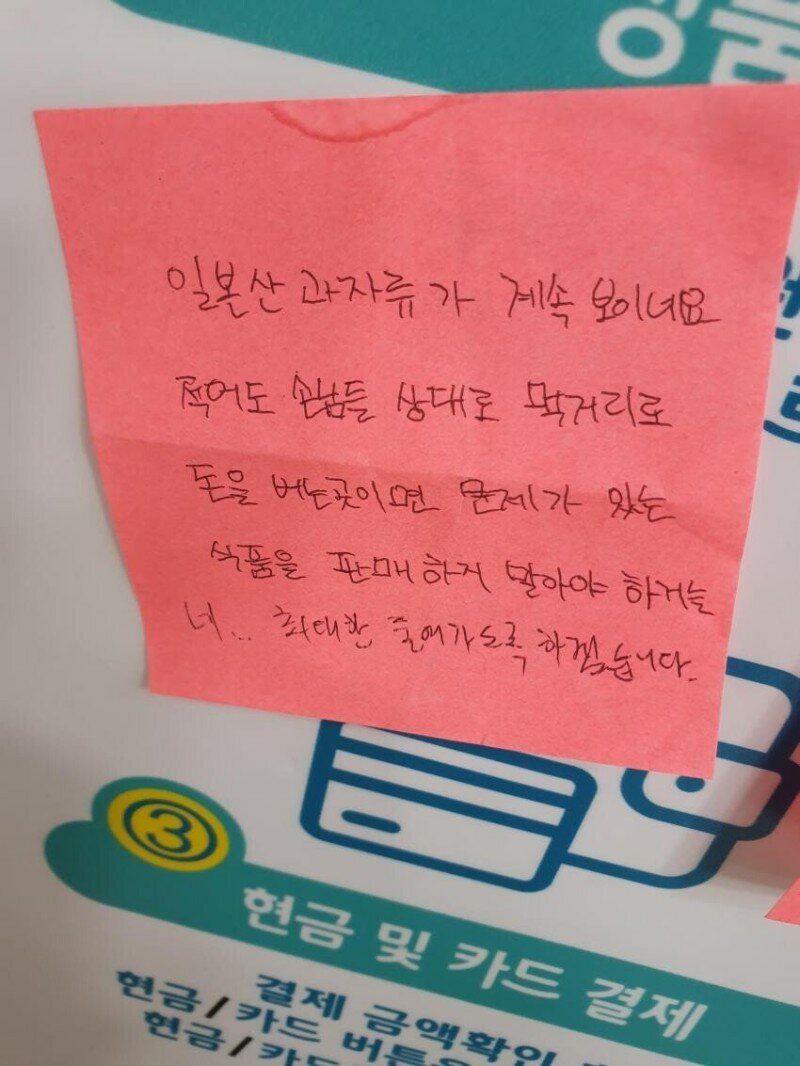 일본산 과자류가 계속 보이네요
적어도 손님들 상대로 먹거리로
돈을 버는곳이면 문제가 있는
식품을 판매하지 말아야 하거늘
네... 최대한 줄여가도록 하겠습니다.
3
현금 및 카드 결제
결제 금액확인
현금/카드 버튼
현금/카드